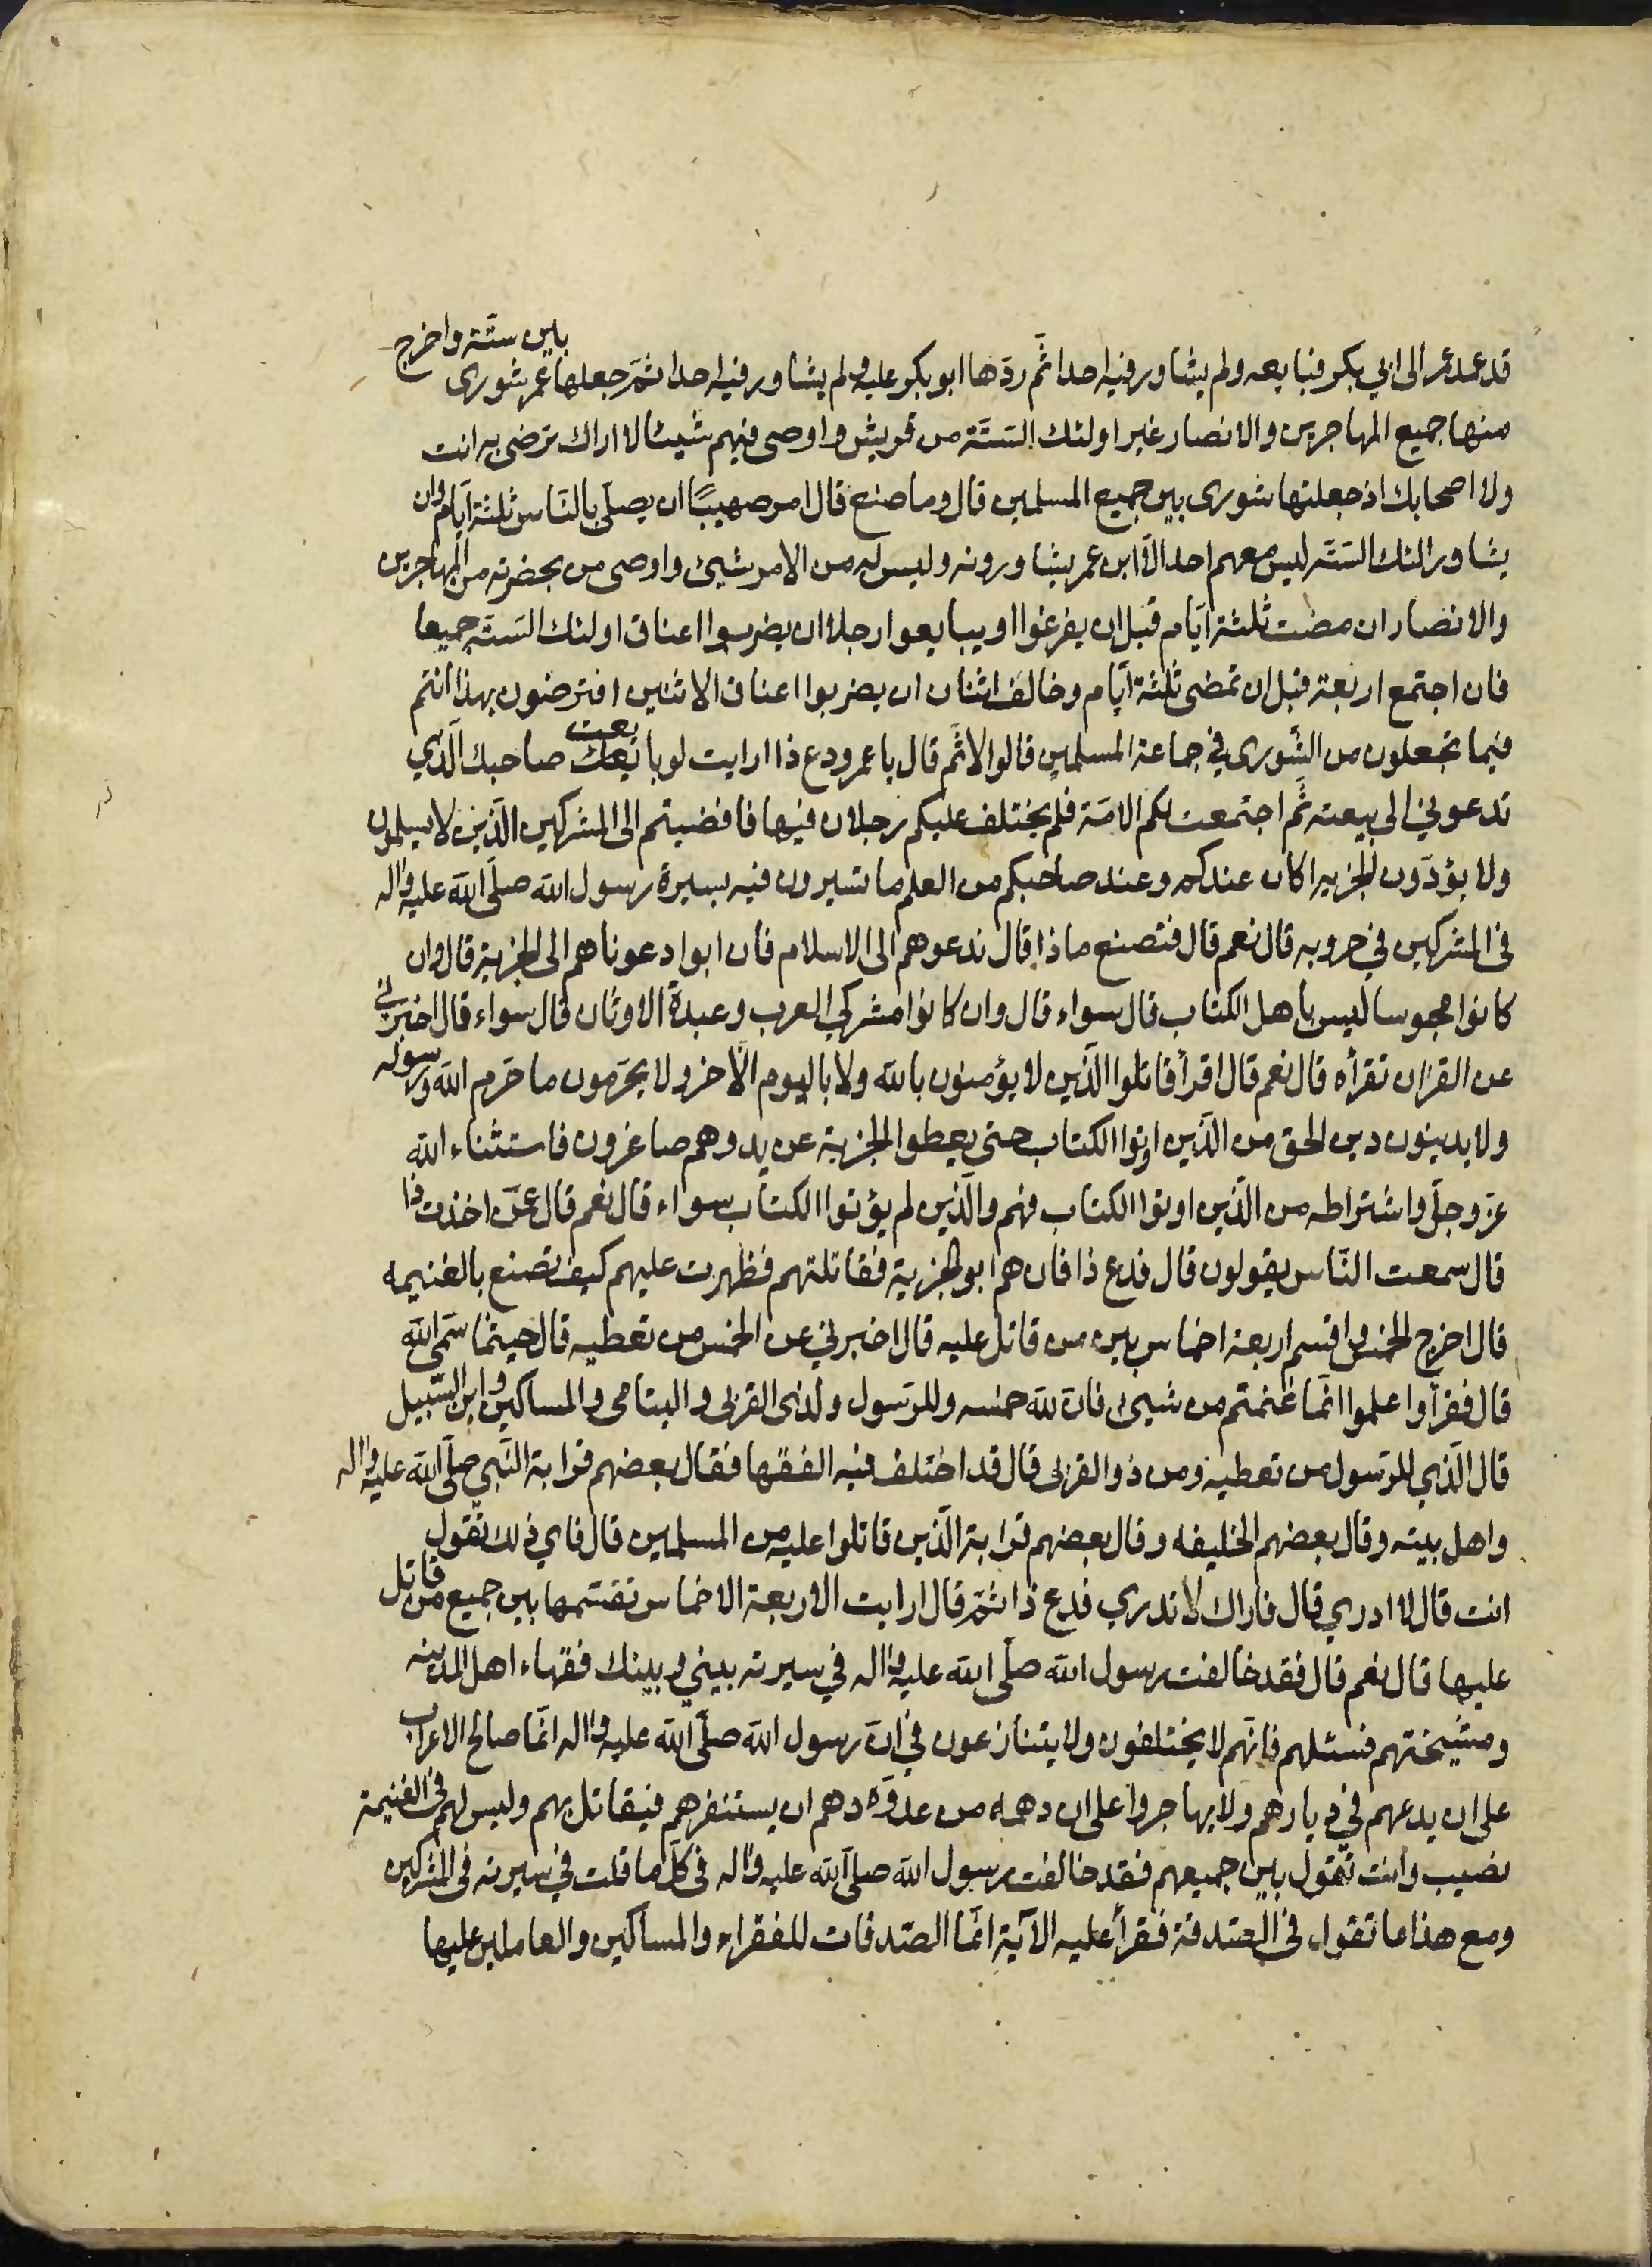 قد عمد عمر الى ابي بكر فبايعه ولم يشاور فيه احدا ثم ردّها ابو بكر عليه ولم يشاور فيه احدا ثمّ جعلها عمر شورى بين ستّة واخرج
منها جميع المهاجرين والانصار غير اولئك الستّة من قريش واوصى فيهم شيئا لا اراك ترضى به انت
ولا اصحابك اذ جعلتها شورى بين جميع المسلمين قال وما صنع قال امر صهيبًا ان يصلّي بالنّاس ثلثة ايّام وان
يشاور الئك الستّه ليس معهم احد الّا ابن عمر يشاورونه وليس له من الامر شيئ واوصى من بحضرته من المهاجرين
والانصار ان مضت ثلثة ايّام قبل ان يفرغوا او يبايعوا رجلا ان يضربوا اعناق اولئك الستّه جميعا
فان اجتمع اربعة قبل ان تمضى ثلثة ايّام وخالف اثنان ان يضربوا اعناق الاثنين افترضون بهذا انتم
فيما تجعلون من الشّورى في جماعة المسلمين قالوا لا ثمّ قال يا عمرو دع ذا ارايت لو بايعت صاحبك الّذي
تدعوني الى بيعته ثمّ اجتمعت لكم الامّة فلم يختلف عليكم رجلان فيها فافضيتم الى المشركين الّذين لا يسلمون
ولا يؤدّون الجزيه اكان عندكم وعند صاحبكم من العلم ما تسيرون فيه بسيرة رسول الله صلّى الله عليه واله
فى المشركين في حروبه قال نعم قال فتصنع ماذا قال ندعوهم الى الاسلام فان ابوا دعوناهم الى الجزية قال وان
كانوا مجوسا ليس باهل الكتاب قال سواء قال وان كانوا مشركي العرب وعبدة الاوثان قال سواء قال اخبرني
عن القران تقرأه قال نعم قال اقرأ قاتلوا الّذين لا يؤمنون بالله ولا باليوم الاخر ولا يحرّمون ما حرم الله ورسوله
ولا يدينون دين الحق من الّذين اوتوا الكتاب حتى يعطوا الجزية عن يد وهم صاغرون فاستثناء الله
عزّ وجلّ واشتراطه من الّذين اوتوا الكتاب فهم والّذين لم يؤتوا الكتاب سواء قال نعم قال عمّن اخذت ذا
قال سمعت النّاس يقولون قال فدع ذا فان هم ابوا الجزية فقاتلتهم فظهرت عليهم كيف تصنع بالغنيمه
قال اخرج الخمس واقسم اربعة اخماس بين من قاتل عليه قال اخبرني عن الخمس من تعطيه قال حيثما سمّى الله
قال فقرأ واعلموا انّما غنمتم من شيئ فانّ لله خمسه وللرّسول ولذى القربى واليتامى والمساكين وابن السّبيل
قال الّذي للرّسول من تعطيه ومن ذو القربى قال قد اختلف فيه الفقها فقال بعضهم قرابة النّبي صلّى الله عليه واله
واهل بيته وقال بعضهم الخليفه وقال بعضهم قرابة الّذين قاتلوا عليه من المسلمين قال فاي ذلك تقول
انت قال لا ادري قال فاراك لا تدري فدع ذا ثمّ قال ارايت الاربعة الاخماس تقسّمها بين جميع من قاتل
عليها قال نعم قال فقد خالفت رسول الله صلّى الله عليه واله في سيرته بيني وبينك فقهاء اهل المدينه
ومشيختهم فسئلهم فانّهم لا يختلفون ولا يتنازعون في انّ رسول الله صلّى الله عليه واله انّما صالح الاعراب
على ان يدعهم في ديارهم ولا يهاجروا على ان دهمه من عدوّه دهم ان يستنفرهم فيقاتل بهم وليس لهم فى الغنيمة
نصيب وانت تقول بين جميعهم فقد خالفت رسول الله صلى الله عليه واله فى كلّ ما قلت في سيرته فى المشركين
ومع هذا ما تقول فى الصّدقة فقرأ عليه الآية انّما الصّدقات للفقراء والمساكين والعاملين عليها